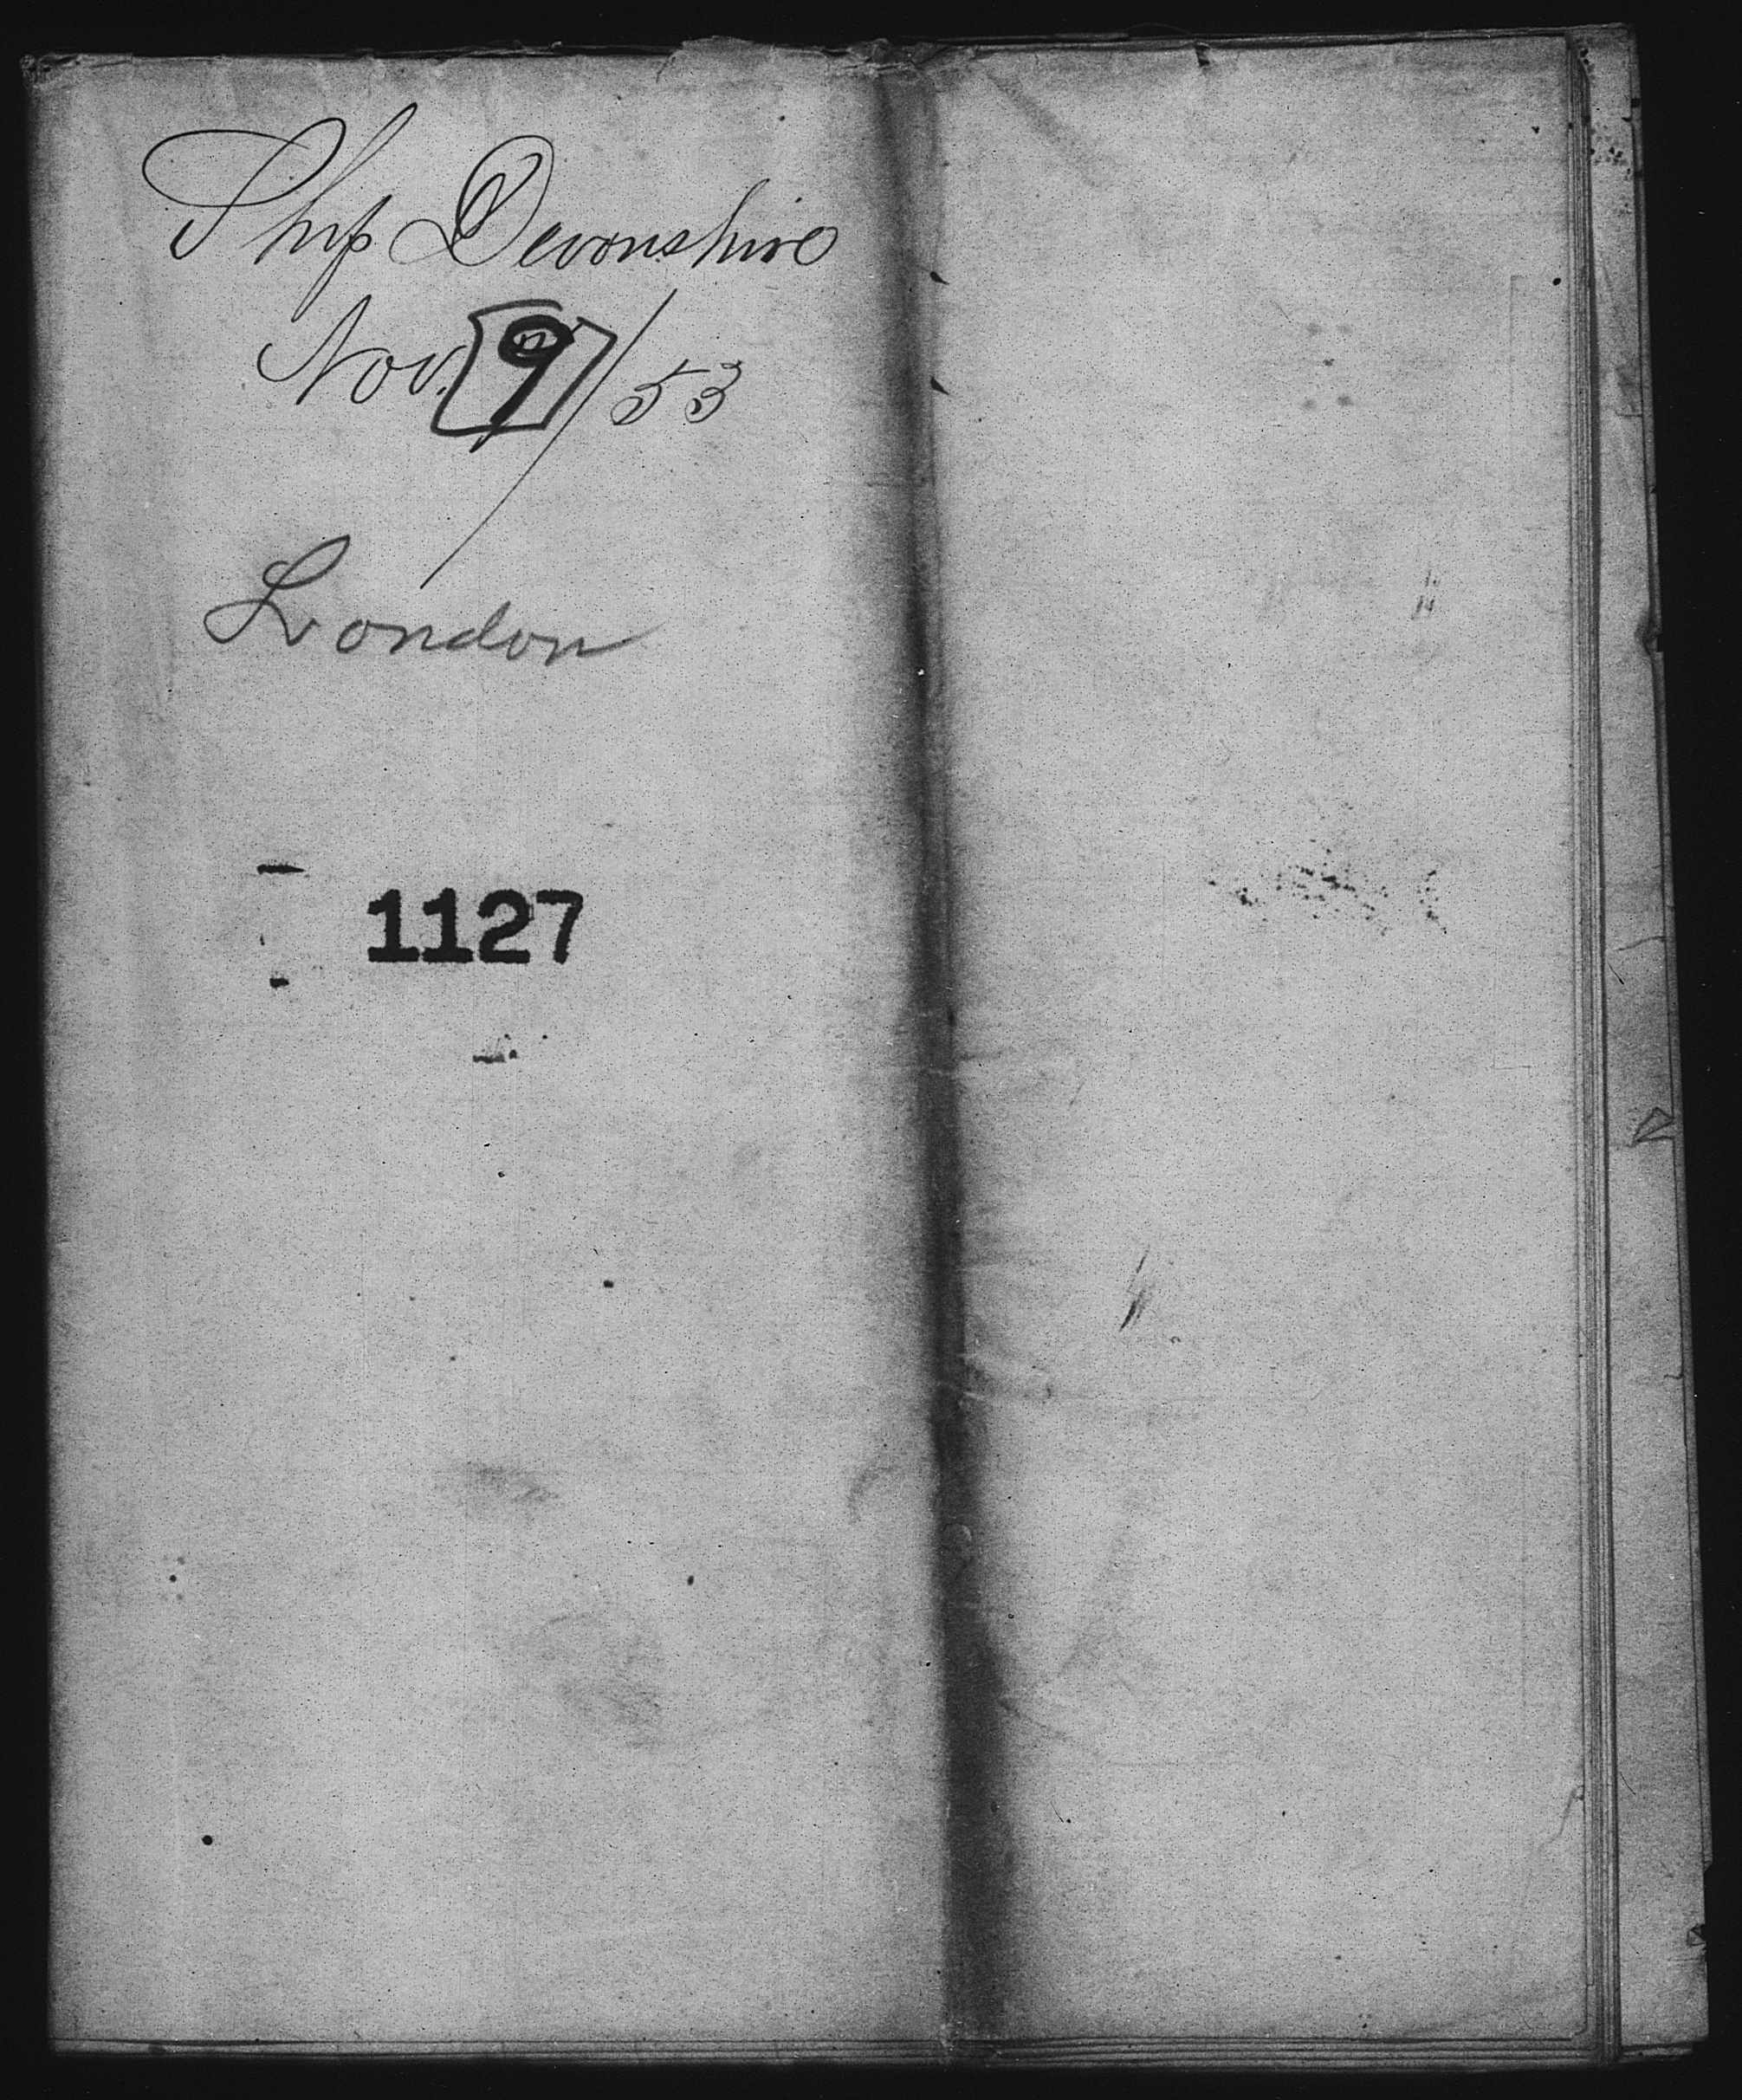 Ship Devonshire
Nov. 9/53
London
1127